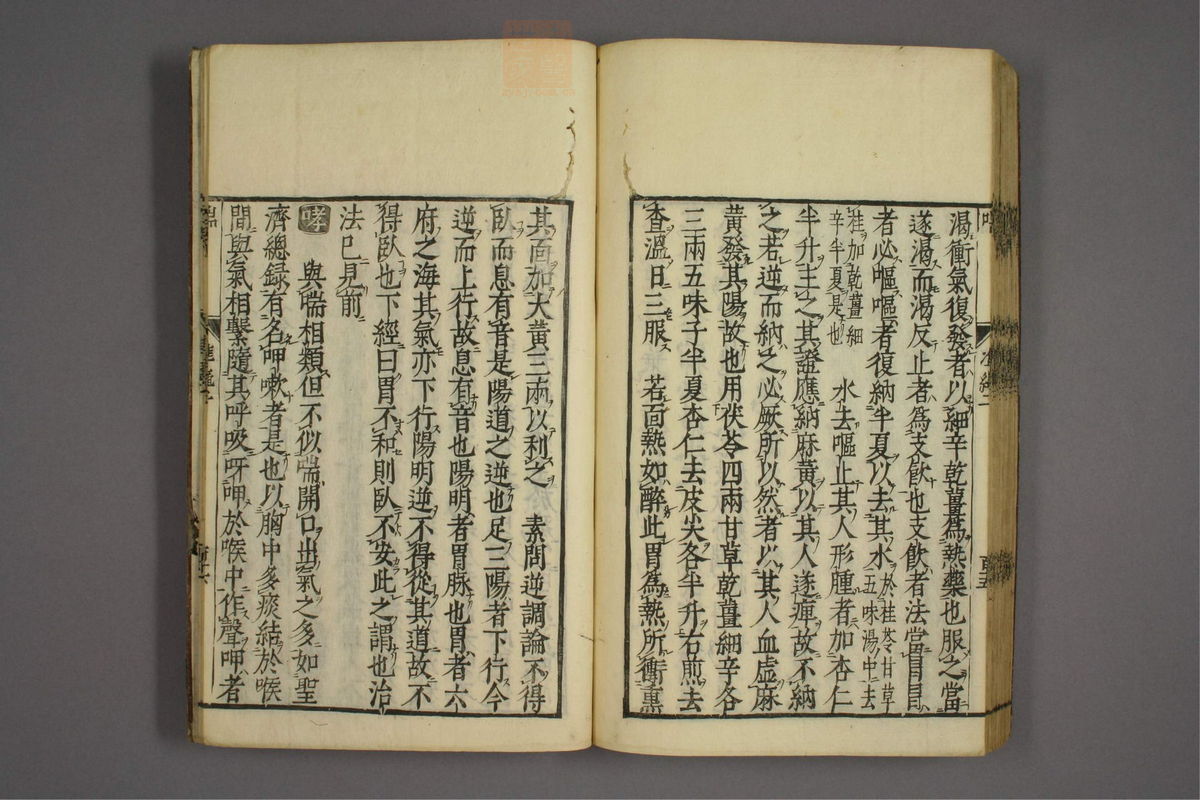 渴衝氣復發者以細辛乾薑爲熱藥也服之當
遂渴而渴反止者爲支飲也支飲者法當冒冒
者必嘔嘔者復納半夏以去其水於桂苓甘草五味湯中去
桂加乾薑細辛半夏是也 水去嘔止其人形腫者加杏仁
半升主之其證應納麻黃以其人遂痺故不納
之若逆而納之必厥所以然者以其人血虛麻
黃發其陽故也用茯苓四兩甘草乾薑細辛各
三兩五味子半夏杏仁去皮尖各半升右煎去
查溫日三服 若面熱如醉此胃爲熱所衝熏
其面加大黃三兩以利之 素問逆調論不得
臥而息有音是陽道之逆也足三陽者下行今
逆而上行故息有音也陽明者胃脉也胃者六
府之海其氣亦下行陽明逆不得從其道故不
得臥也下經曰胃不和則臥不安此之謂也治
法已見前
哮 與喘相類但不似喘開口出氣之多如聖
濟總録有名呷嗽者是也以胸中多痰結於喉
間與氣相繫隨其呼吸呀呷於喉中作聲呷者